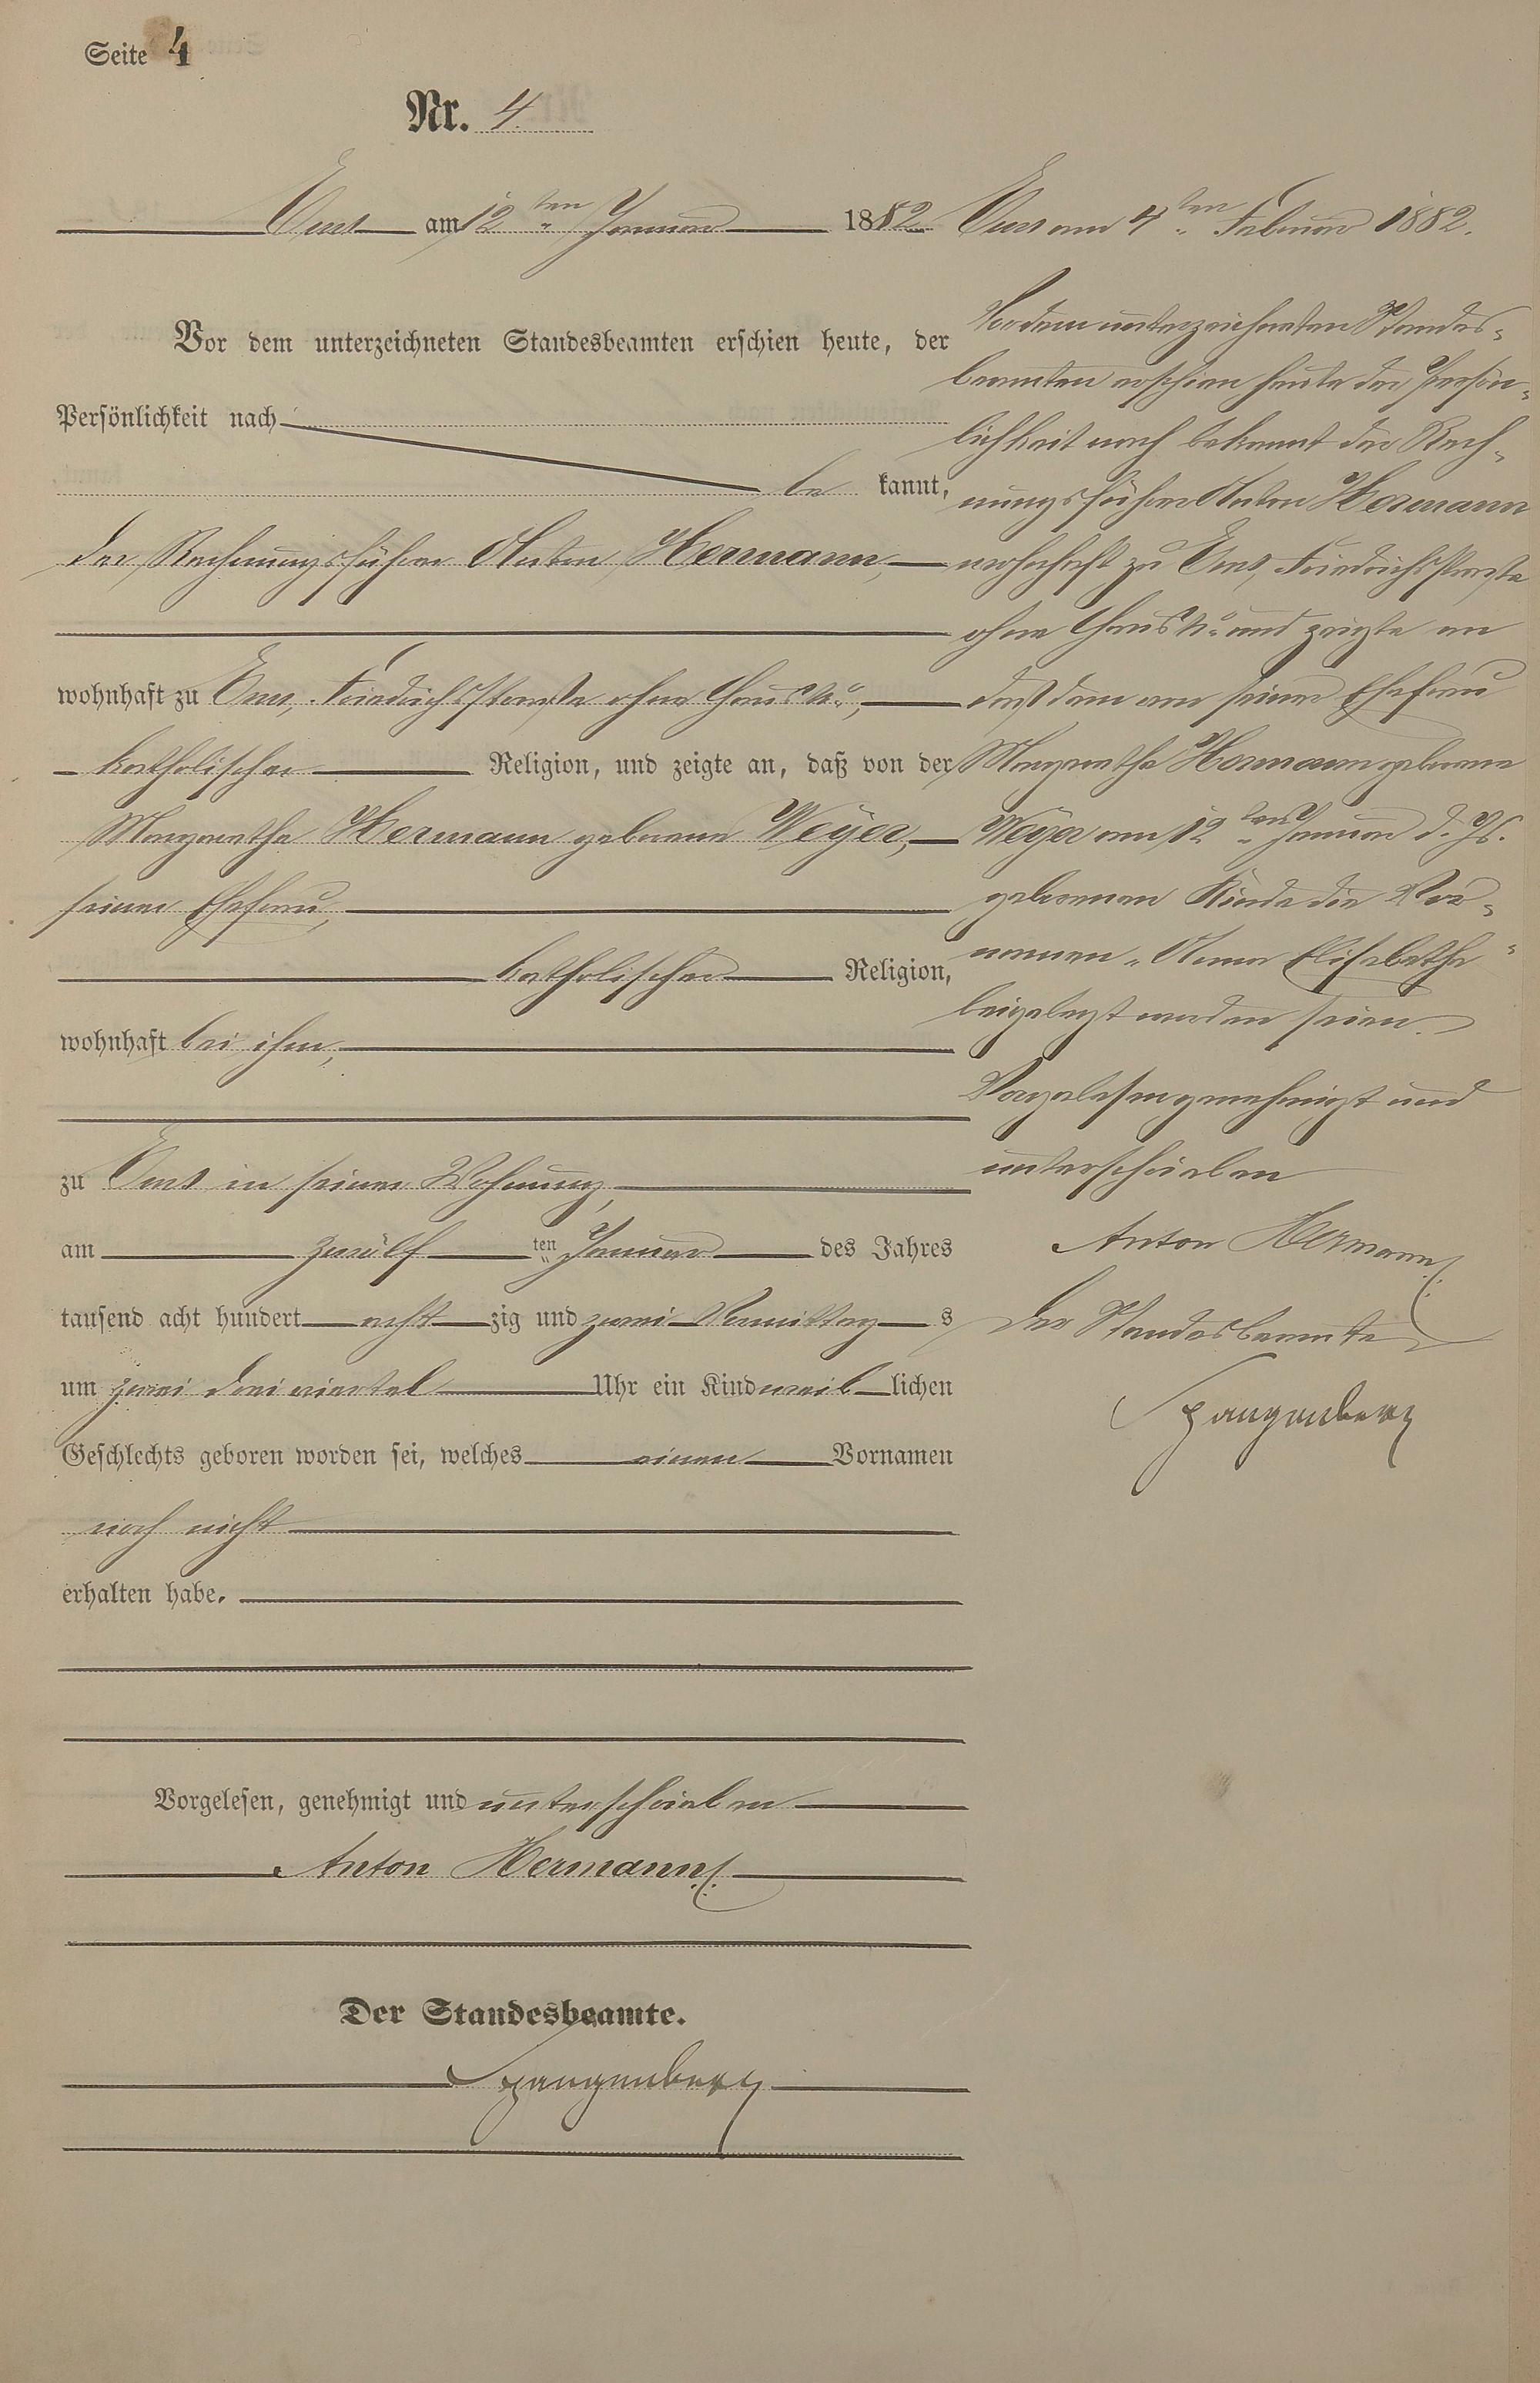 Seite 4
Nr. 4.
Ems am 12ten Januar 1882
Vor dem unterzeichneten Standesbeamten erschien heute, der
Persönlichkeit nach
be kannt,
der Rechnungsführer Anton Hermann,
wohnhaft zu Ems, Friedrichsstraße ohne Haus No,
katholischer Religion, und zeigte an, daß von der
Margaretha Hermann geborene Weÿer,
seiner Ehefrau,
katholischer Religion,
wohnhaft bei ihm,
zu Ems in seiner Wohnung,
am zwölf ten Januar des Jahres
tausend acht hundert acht zig und zwei Vormittag s
um zwei drei viertel Uhr ein Kind weib lichen
Geschlechts geboren worden sei, welches einen Vornamen
noch nicht
erhalten habe.
Vorgelesen, genehmigt und unterschrieben
Anton Hermann
Der Standesbeamte.
Spangenberg
Ems am 4ten Februar 1882.
Vor dem unterzeichneten Standes-
beamten erschien heute der Persön-
lichkeit nach bekannt der Rech-
nungsführer Anton Hermann
wohnhaft zu Ems, Friedrichsstraße
ohne Haus No und zeigte an
daß dem von seiner Ehefrau
Margaretha Hermann geborene
Weÿer am 12ten Januar d. Js.
geborenen Kinde die Vor-
namen "Anna Elisabetha"
beigelegt worden seien.
Vorgelesen genehmigt und
unterschrieben
Anton Hermann
Der Standesbeamte
Spangenberg